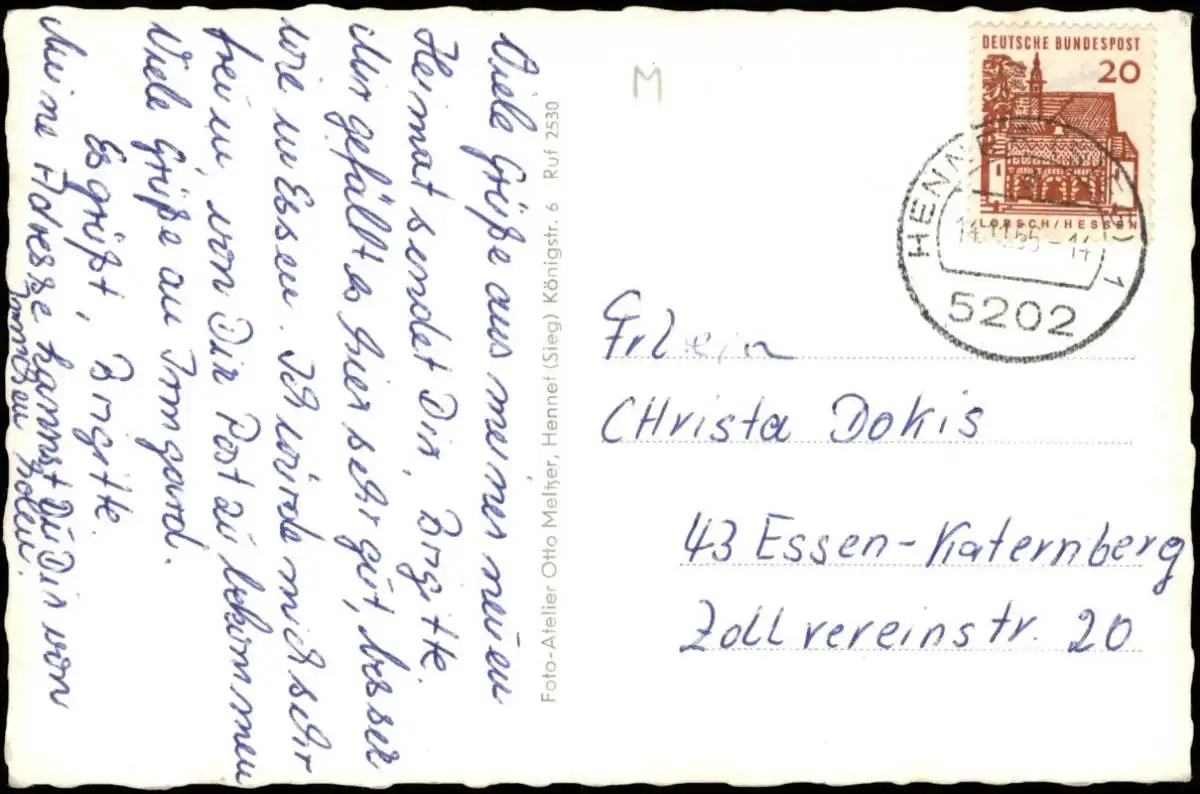 Viele Grüße aus meiner neuen
Heimat sendet Dir, Brigitte.
Mir gefällt es hier sehr gut, besser
wie in Essen. Ich würde mich sehr
freuen, von Dir Post zu bekommen
Viele Grüße an Irmgard.
Es grüßt, Brigitte.
Meine Adresse kannst Du Dir von
holen.
Foto-Atelier Otto Meltzer, Hennef (Sieg) Königstr. 6 Ruf 2530
M
DEUTSCHE BUNDESPOST
20
LORSCH/HESSEN
1
5202
Frlein
CHrista Dokis
43 Essen-Katernberg
Zollvereinstr. 20